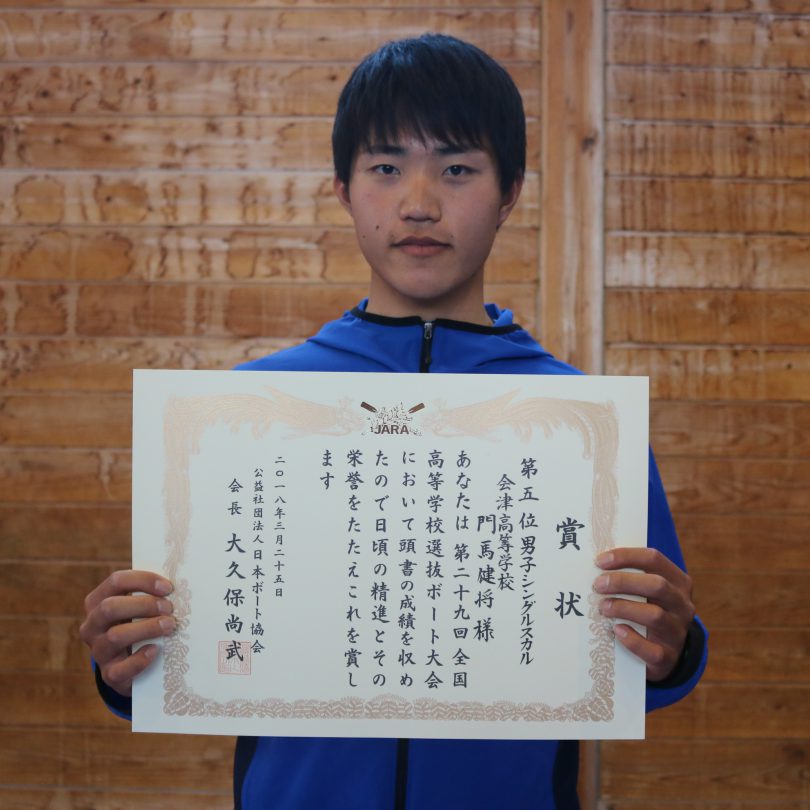 JARA
賞状
第五位男子シングルスカル
会津高等学校
門馬健将様
あなたは第二十九回全国
高等学校選抜ボート大会
において頭書の成績を収め
たので日頃の精進とその
栄誉をたたえこれを賞し
ます
二〇一八年三月二十五日
公益社団法人日本ボート協会
会長 大久保尚武